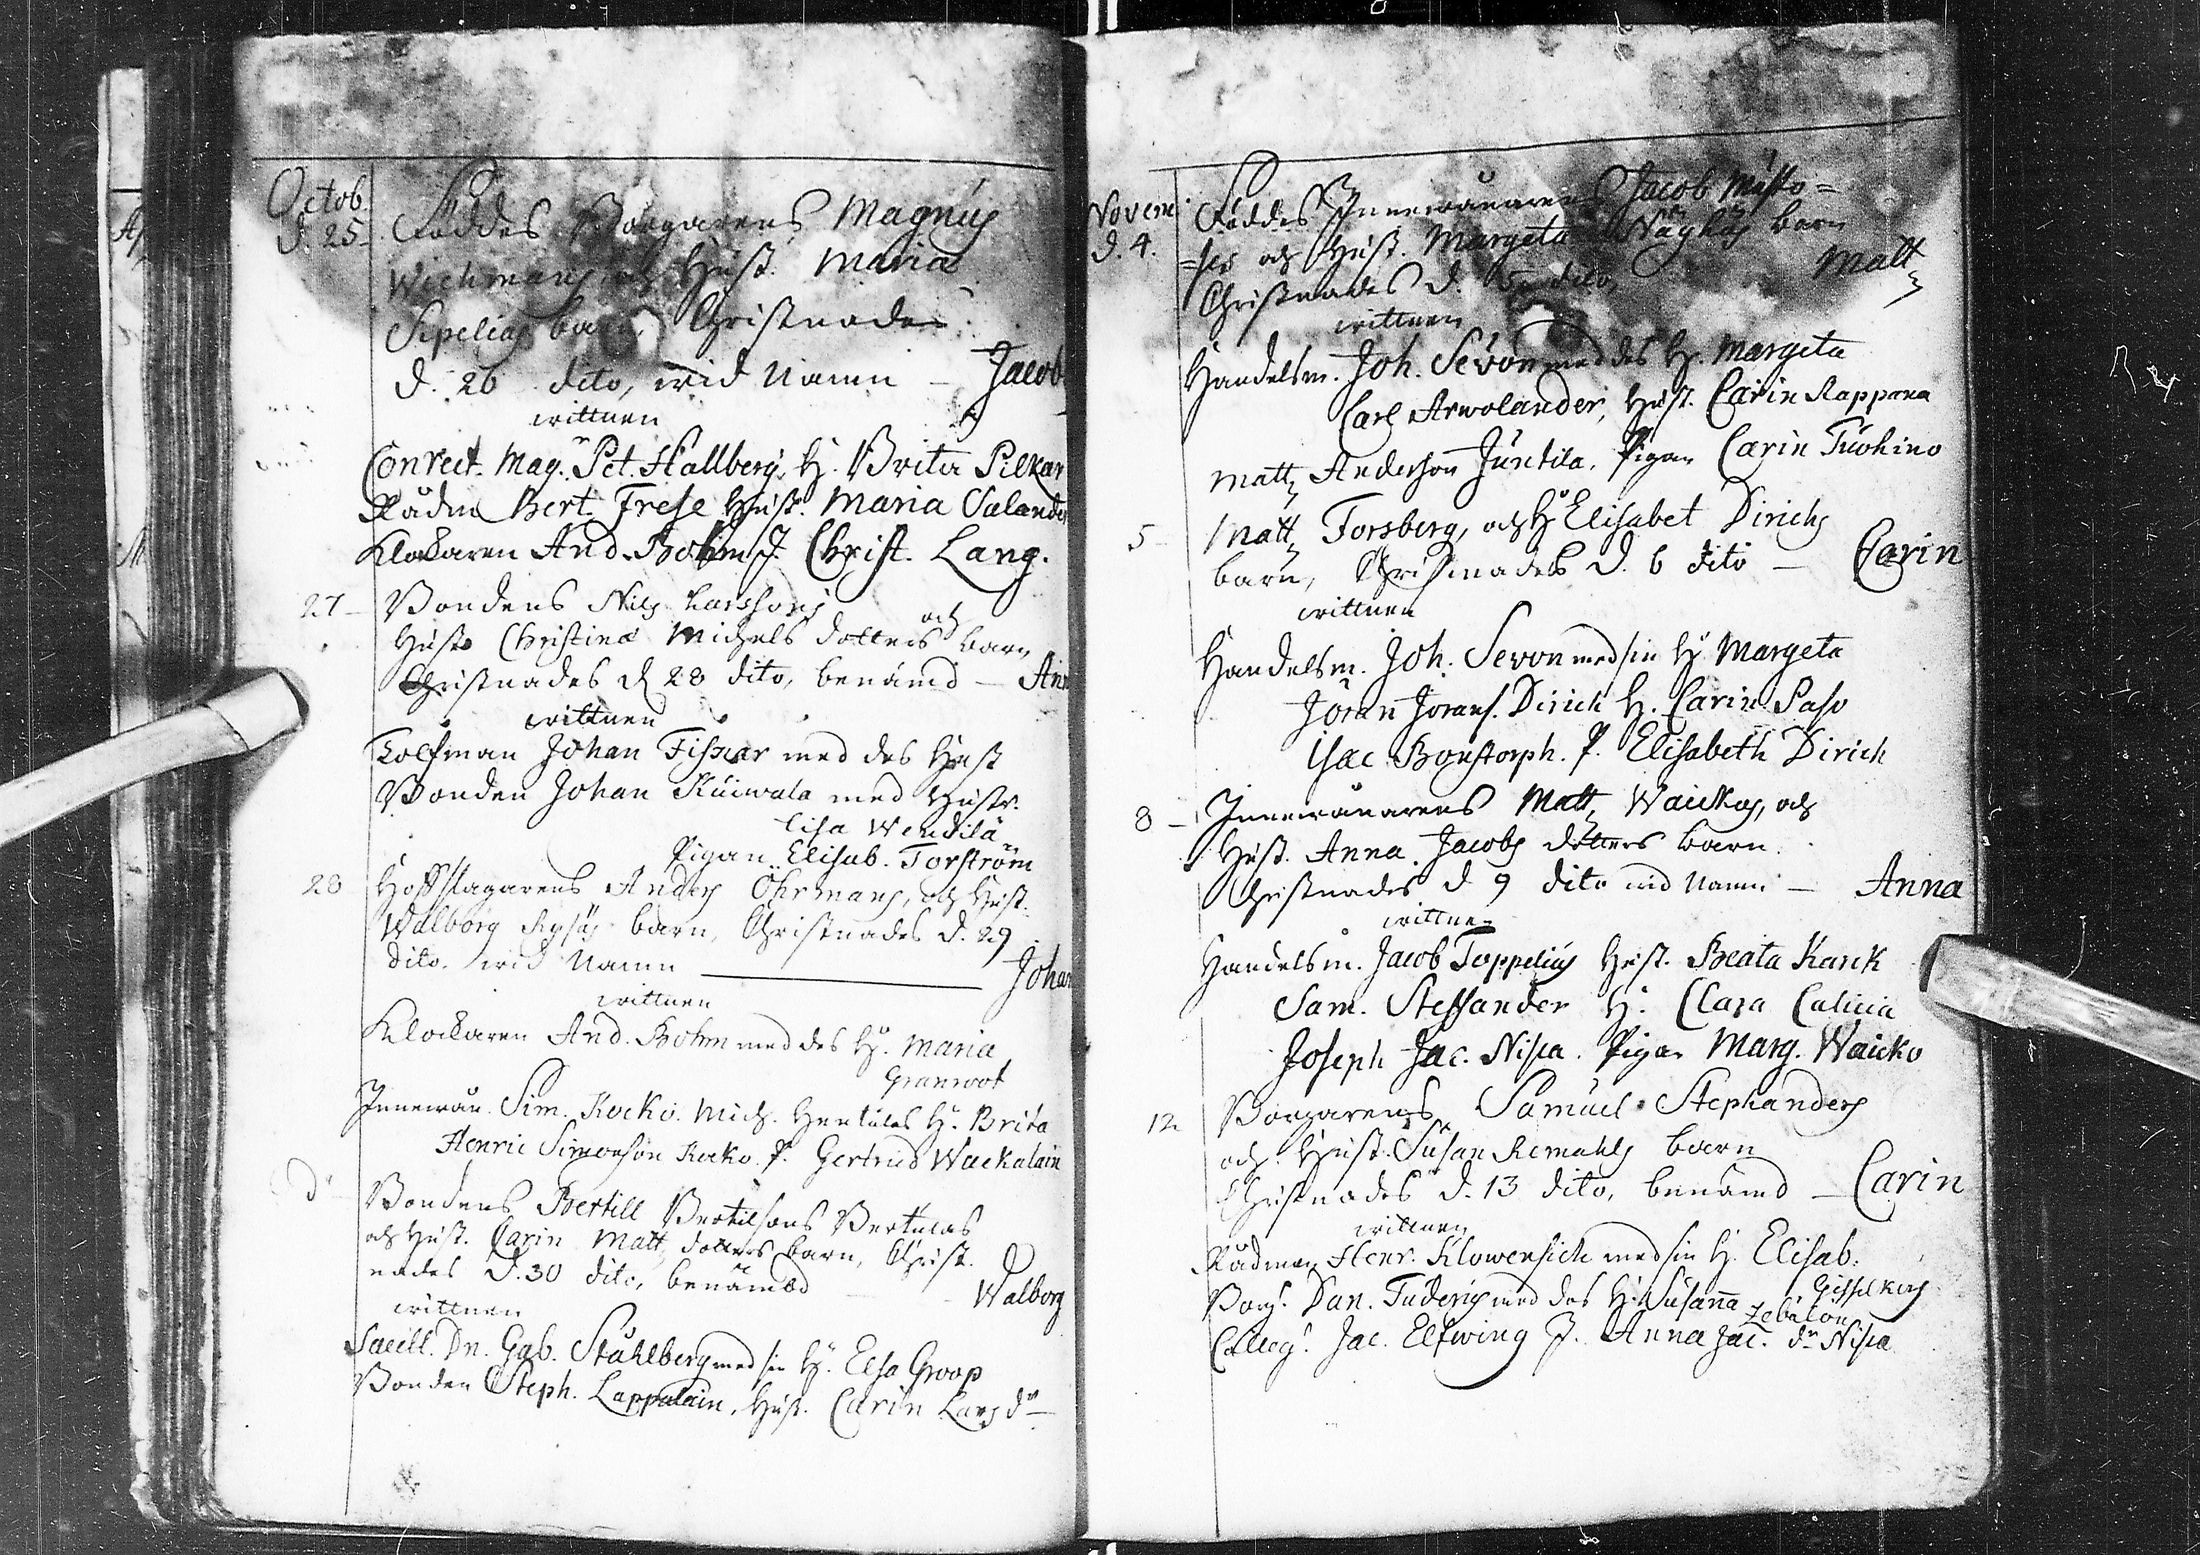 Octob.
d. 25. Föddes Borgarens Magnus
Wichmans och Hust. Maria
Sipelias barn, Christnades
d. 26 dito, wid Namn – Jacob
wittnen
Conrect. Mag. Pet. Hallberg, H. Brita Pilkar
Rådm Bert. Frese Hust. Maria Salander
Klockaren And. Bohm J. Christ. Lang.
27 – Bondens Nils Larssons och
Hust. Christina Michels dotters barn
Christnades d 28 dito, benämd – Ann
wittnen
Tolfman Johan Fiskar med des Hust
Bonden Johan Kuiwala med Hustr.
Lisa Wendilä
Pigan Elisab. Torström
28 Hofslagarens Anders Öhrmans, och Hust.
Walborg barn, Christnades d. 29
dito. wid Namn – Johan
wittnen
Klockaren And. Bohm med des H. Maria
Granroot
Innewån. Sim. Kocko. Mich. Hertulas H. Brita
Henric Simonson Kocko. P. Gertrud Wackalain
d° Bondens Bertill Bertilsons Bertulas
och Hust. Carin Matt. dotters barn, Christ.
nades d. 30 dito, benämbd – Walborg
wittnen
Sacell. Dn. Gab. Ståhlberg med sin H. Elsa Groop
Bonden Steph. Lappalain, Hust. Carin Lars dr
Novem.
d. 4. Föddes Innewånarens Jacob Musto=
=ses och Hust. Margeta barn
Christnades d. 5 dito, Matt
wittnen
Handelsm. Joh. Sevon med des H. Margeta
Carl Arwolander, Hust. Carin Rappana
Matt Anderson Juntila, Pigan Carin Tuohino
5 – Matt Forsberg, och H Elisabet Dirichs
barn, Christnades d. 6 dito – Carin
wittnen
Handelsm. Joh. Sevon med sin H. Margeta
Jöran Jorans. Dirich H. Carin Paso
Isac Bonstorph. P. Elisabeth Dirich
8 – Innewånarens Matt Waickos, och
Hust. Anna Jacobs dotters barn.
Christnades d 9 dito wid Namn – Anna
wittnen
Handelsm. Jacob Toppelius Hust. Beata Karck
Sam. Steffander H. Clara Calicia
Joseph Jac. Niska. Pigan Marg. Waicko
12 Borgarens Samuel Stephanders
och Hust. Susan Remahls barn
Christnades d. 13 dito, benämd – Carin
wittnen
Rådman Henr. Klowensich med sin H. Elisab.
Gisselkors
Borg. Dan. Tuderus med des H. Susanna
Zebulon
Colleg. Jac. Elfwing P. Anna Jac. dr Niska